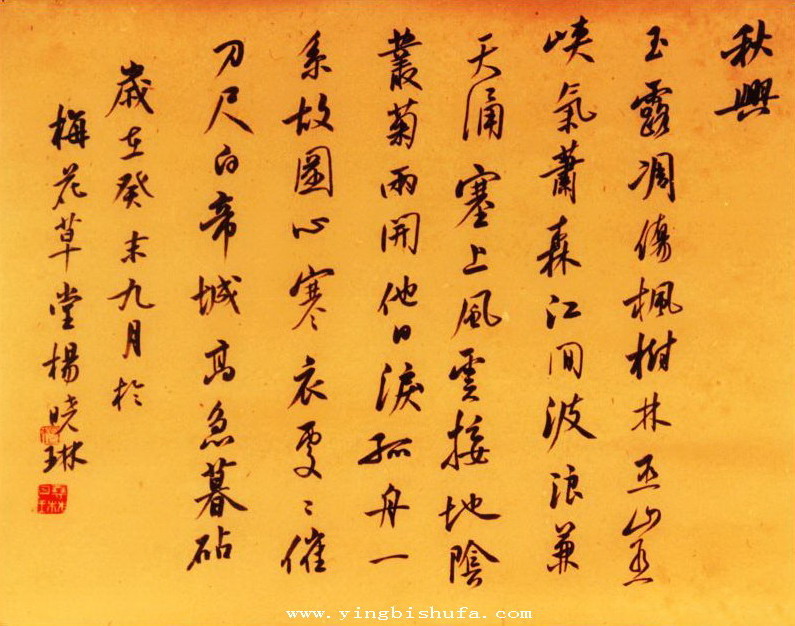 秋興
玉露凋傷枫樹林巫山巫
峡氣蕭森江间波浪兼
天涌塞上風雲接地陰
叢菊兩開他日淚孤舟一
系故園心寒衣处々催
刀尺白帝城高急暮砧
歲在癸未九月於
梅花草堂楊晓琳
www.yingbishufa.com